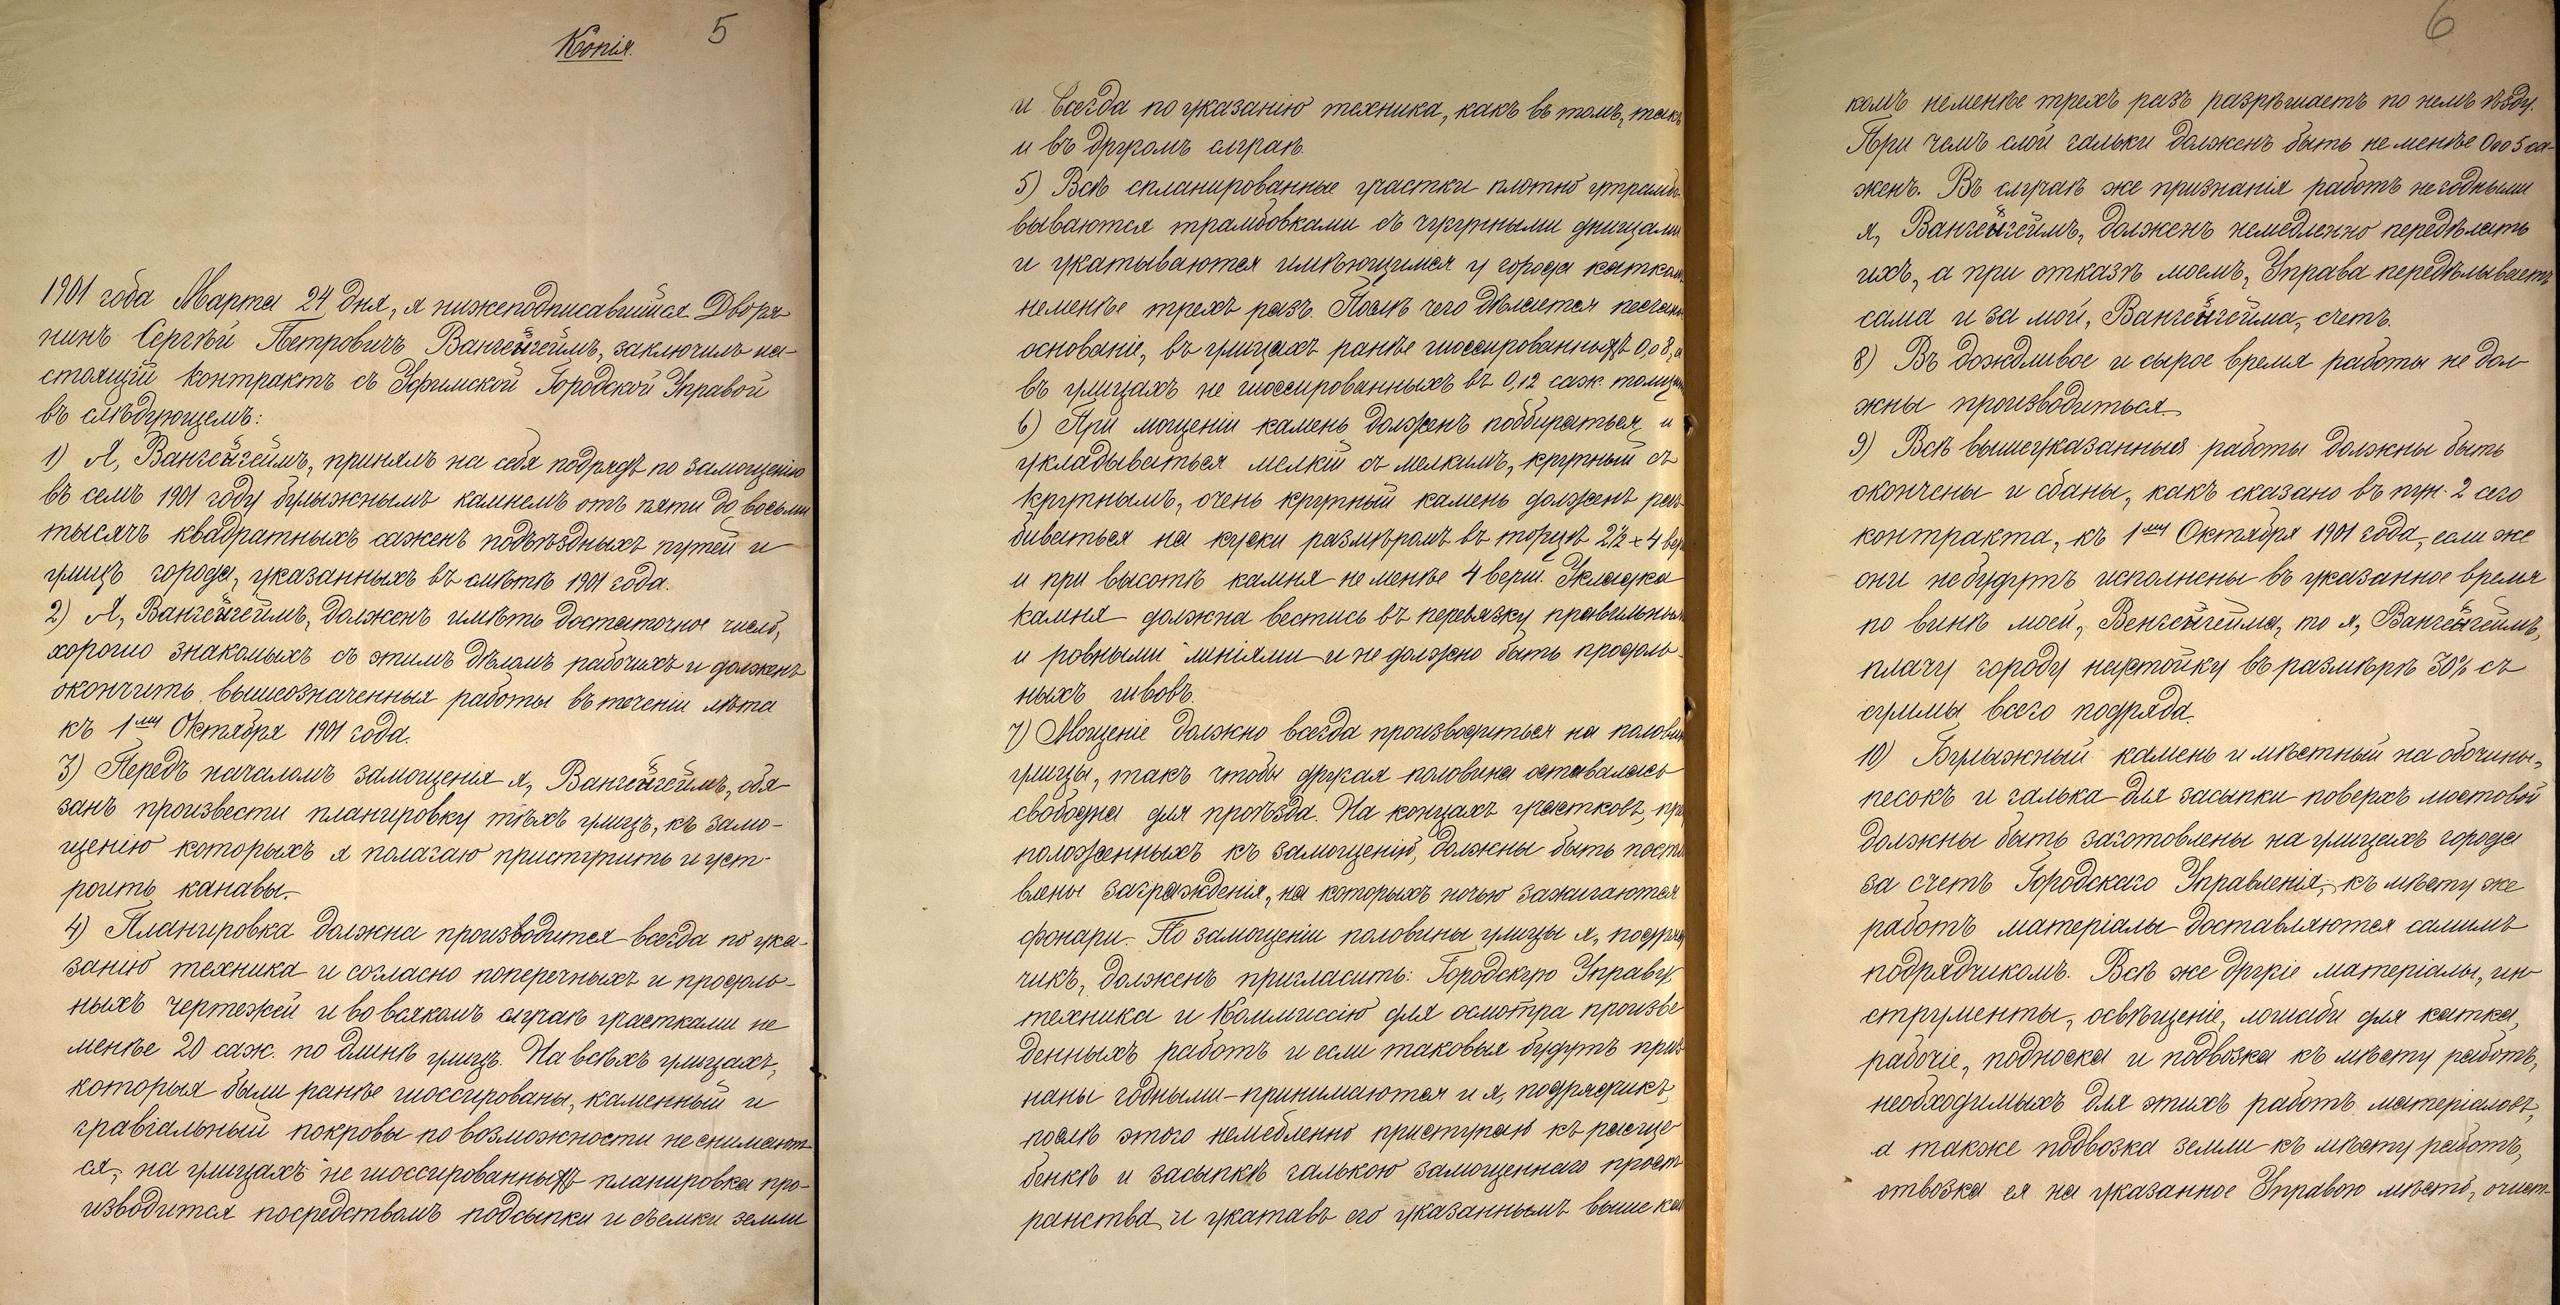 Копія.
5
1901 года Марта 24 дня, я нижеподписавшійся Дворя-
нинъ Сергѣй Петровичъ Вангейгеймъ, заключилъ на-
стоящій контрактъ съ Уфимской Городской Управой
въ слѣдующемъ:
1) Я, Вангейгеймъ, принялъ на себя подрядъ по замощенію
въ семъ 1901 году булыжнымъ камнемъ отъ пяти до восьми
тысячъ квадратныхъ сажень подъѣздныхъ путей и
улицъ города, указанныхъ въ смѣтѣ 1901 года.
2) Я, Вангейгеймъ, долженъ имѣть достаточное число,
хорошо знакомыхъ съ этимъ дѣломъ рабочихъ и долженъ
окончить вышеозначенныя работы въ теченіи лѣта
къ 1му Октября 1901 года.
3) Передъ началомъ замощенія я, Вангейгеймъ, обя-
занъ произвести планировку тѣхъ улицъ, къ замо-
щенію которыхъ я полагаю приступить и уст-
роить канавы.
4) Планировка должна производится всегда по ука-
занію техника и согласно поперечныхъ и продоль-
ныхъ чертежей и во всякомъ случаѣ участками не
менѣе 20 саж. по длинѣ улицъ. На всѣхъ улицахъ,
которыя были ранѣе шоссированы, каменный и
гравіальный покровы по возможности не снимают-
ся, на улицахъ не шоссированныхъ планировка про-
изводится посредствомъ подсыпки и съемки земли
и всегда по указанію техника, какъ въ томъ, такъ
и въ другомъ случаѣ.
5) Всѣ спланированные участки плотно утрамбо-
вываются трамбовками съ чугунными днищами
и укатываются имѣющимся у города каткомъ
неменѣе трехъ разъ. Послѣ чего дѣлается песчан
основаніе, въ улицахъ ранѣе шоссированныхъ 0,08, а
въ улицахъ не шоссированныхъ въ 0,12 саж. толщин
6) При мощеніи камень долженъ подбираться и
укладываться мелкій съ мелкимъ, крупный съ
крупнымъ, очень крупный камень долженъ раз-
биваться на куски размѣромъ въ торцѣ 2½ х 4 вер
и при высотѣ камня не менѣе 4 верш. Укладка
камня должна вестись въ перевязку правильным
и ровными линіями и не должно быть продоль-
ныхъ швовъ.
7) Мощеніе должно всегда производиться на половин
улицы, такъ чтобы другая половина оставалась
свободна для проѣзда. На концахъ участковъ, пр
положенныхъ къ замощенію, должны быть поста
влены загражденія, на которыхъ ночью зажигаются
фонари. По замощеніи половины улицы я, подряд
чикъ, долженъ пригласить: Городскую Управу
техника и Коммиссію для осмотра произве
денныхъ работъ и если таковыя будутъ приз
наны годными – принимаются и я, подрядчикъ,
послѣ этого немедленно приступаю къ расще
бенкѣ и засыпкѣ галькою замощеннаго прост
ранства и укатавъ его указаннымъ выше кат
6
комъ неменѣе трехъ разъ разрѣшаетъ по немъ ѣзду.
При чемъ слой гальки долженъ быть не менѣе 0,005 са-
жень. Въ случаѣ же признанія работъ негодными
я, Вангейгеймъ, долженъ немедленно передѣлать
ихъ, а при отказѣ моемъ, Управа передѣлываетъ
сама и за мой, Вангейгейма, счетъ.
8) Въ дождливое и сырое время работы не дол-
жны производиться.
9) Всѣ вышеуказанныя работы должны быть
окончены и сданы, какъ сказано въ пун. 2 сего
контракта, къ 1му Октября 1901 года, если же
они небудутъ исполнены въ указанное время
по винѣ моей, Венгейгейма, то я, Вангейгеймъ,
плачу городу неустойку въ размѣрѣ 30% съ
суммы всего подряда.
10) Булыжный камень и мѣстный на обочины,
песокъ и галька для засыпки поверхъ мостовой
должны быть заготовлены на улицахъ города
за счетъ Городскаго Управленія, къ мѣсту же
работъ матеріалы доставляются самимъ
подрядчикомъ. Всѣ же другіе матеріалы, ин-
струменты, освѣщеніе, лошади для катка,
рабочіе, подноска и подвозка къ мѣсту работъ,
необходимыхъ для этихъ работъ матеріаловъ,
а также подвозка земли къ мѣсту работъ,
отвозка ея на указанное Управою мѣсто, очист